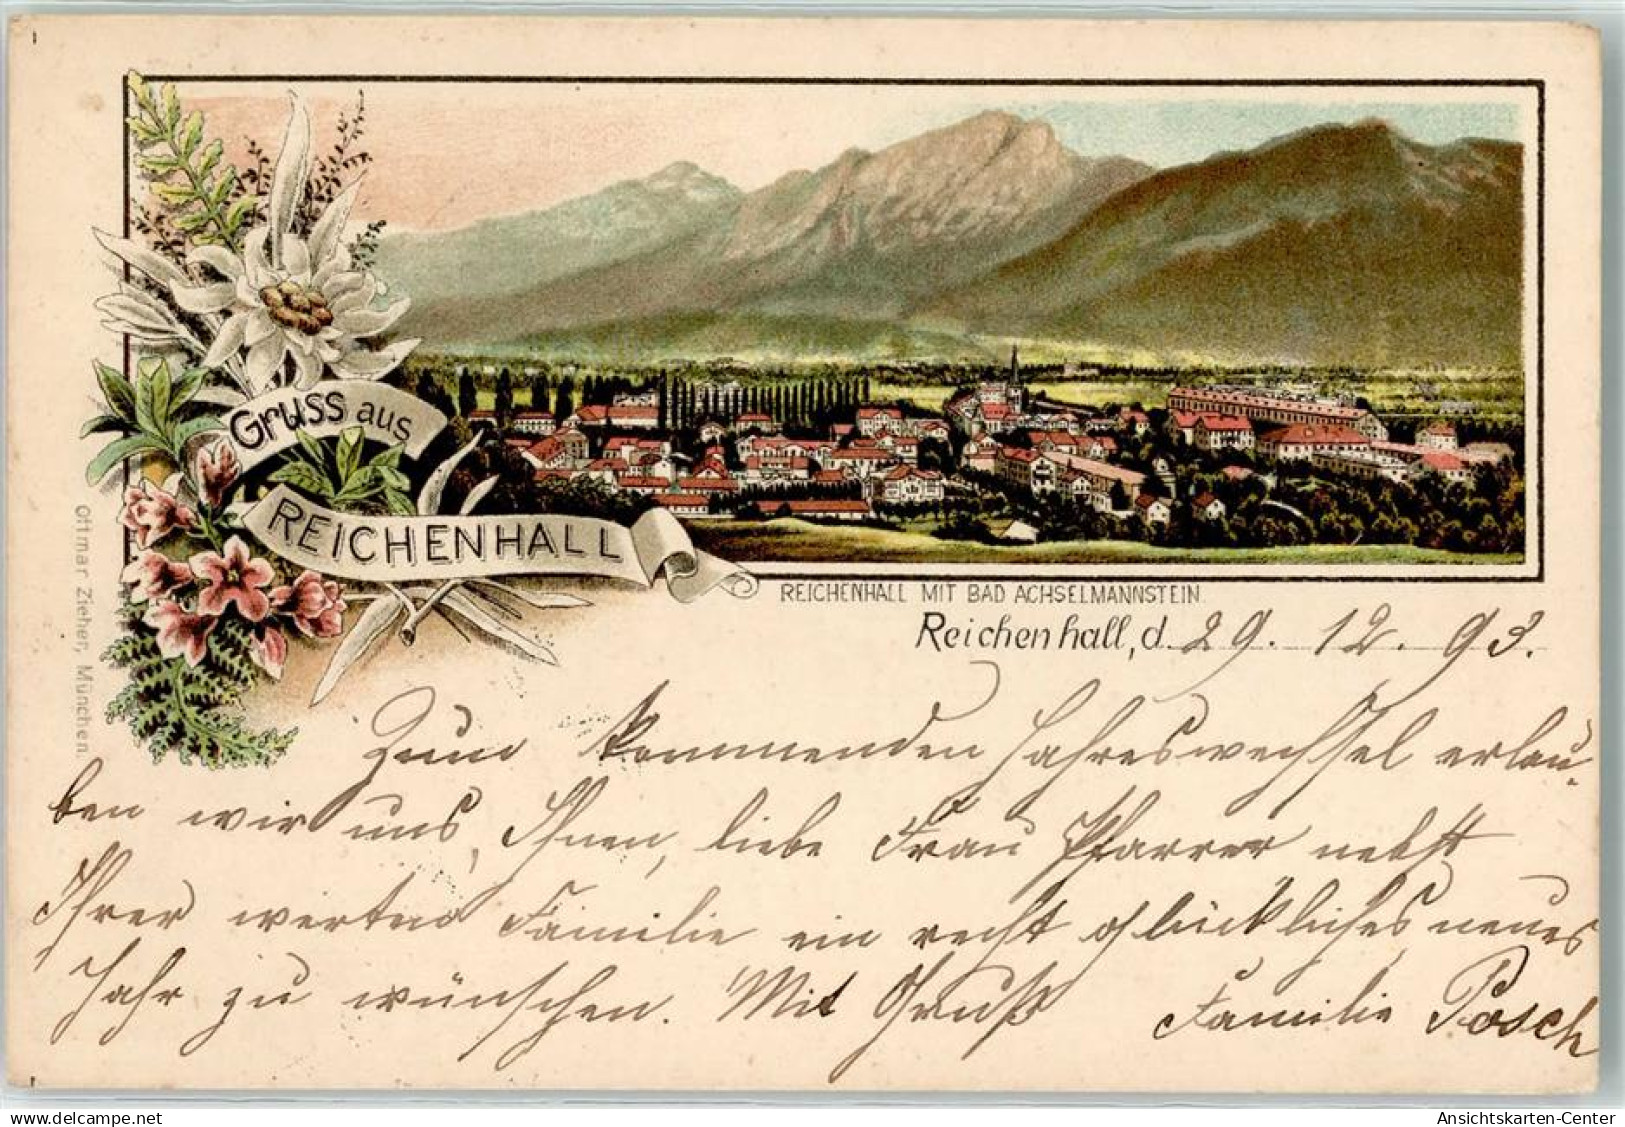 Gruss aus
REICHENHALL
Ottmar Zieher, München.
REICHENHALL MIT BAD ACHSELMANNSTEIN.
Reichenhall, d. 29. 12. 93.
Zum kommenden Jahreswechsel erlau-
ben wir uns, Ihnen, liebe Frau Pfarrer nebst
Ihrer werten Familie ein recht glückliches neues
Jahr zu wünschen. Mit Gruß Familie Posch
delcampe.net
Ansichtskarten-Center